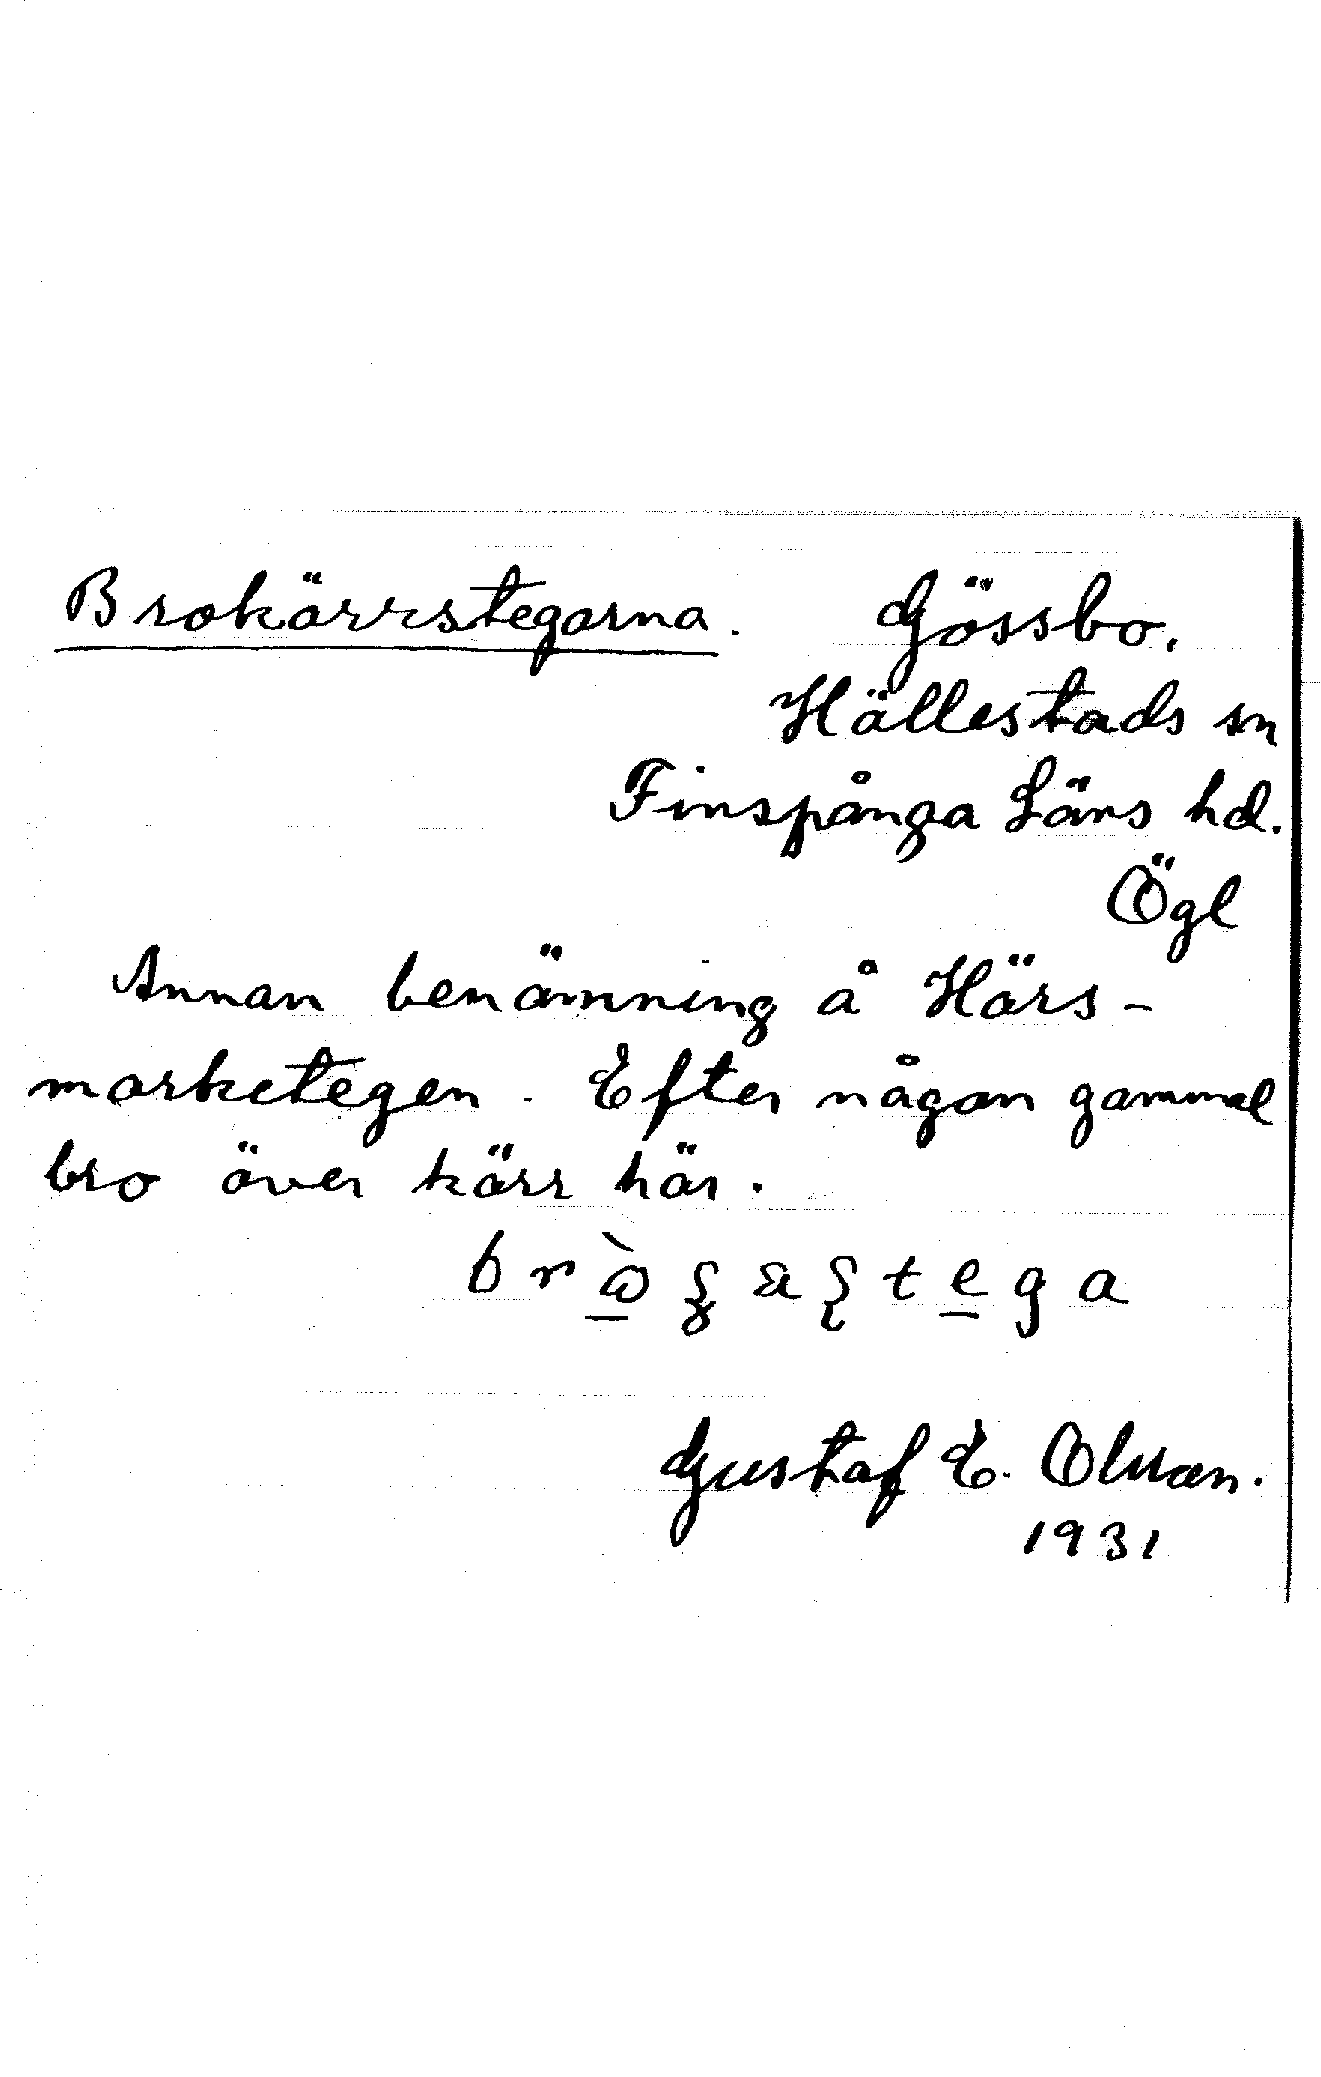 Brokärrstegarna. Gössbo.
Hällestads sn
Finspånga Läns hd.
Ögl
Annan benämning å Härs-
marketegen. Efter någon gammal
bro över kärr här.
Gustaf E. Olsson.
1931